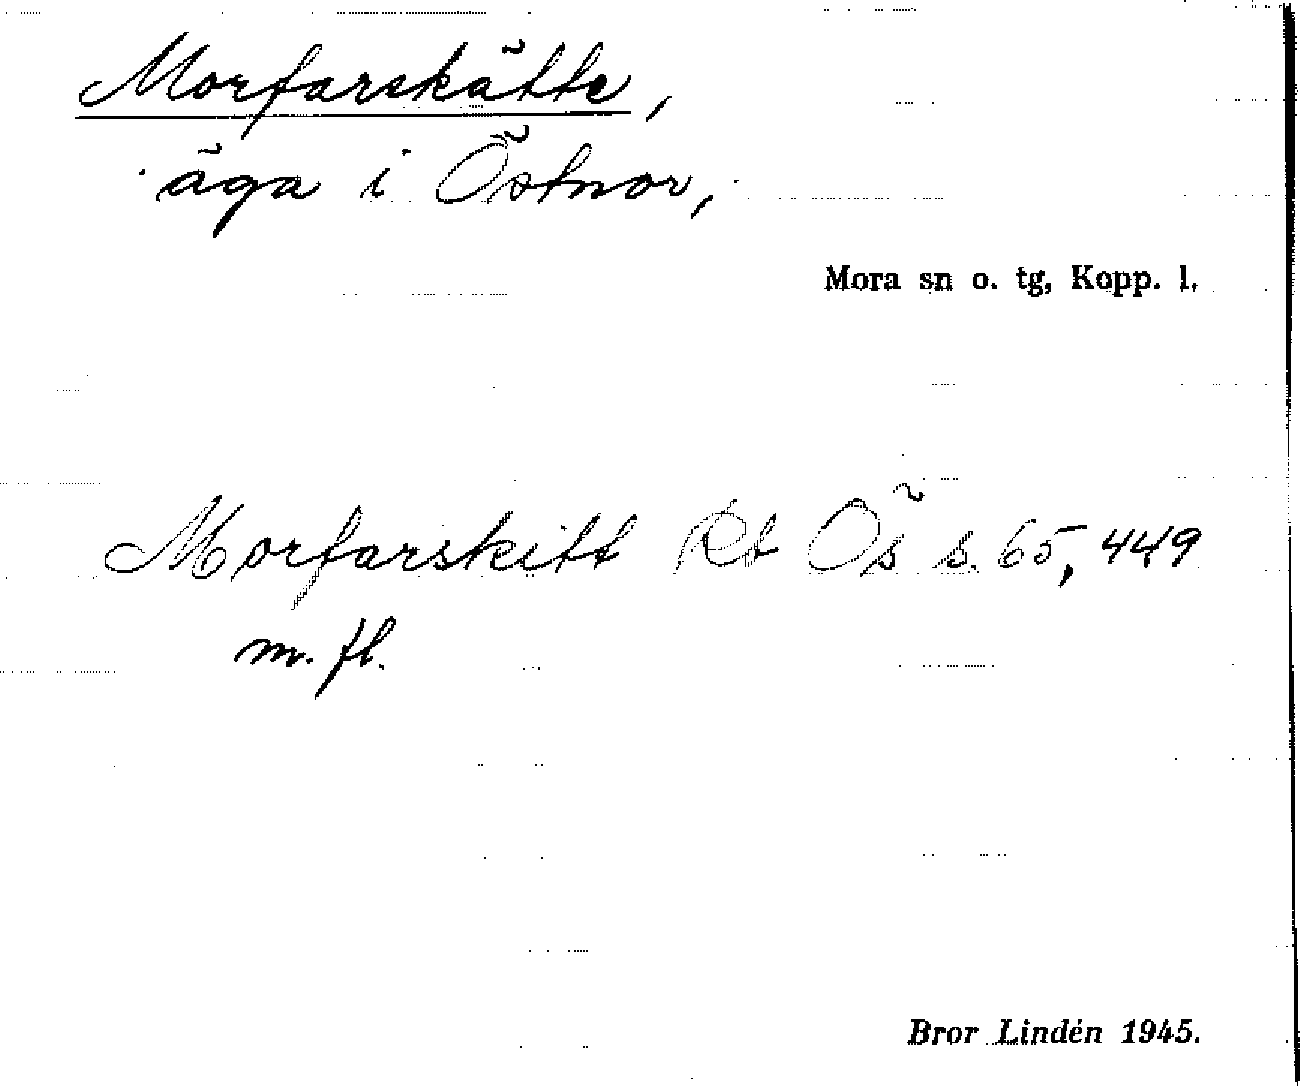 Morfarskätte,
äga i Östnor,
Mora sn o. tg, Kopp. l.
Morfarskitt Rt Ös s. 65, 449
m. fl.
Bror Lindén 1945.